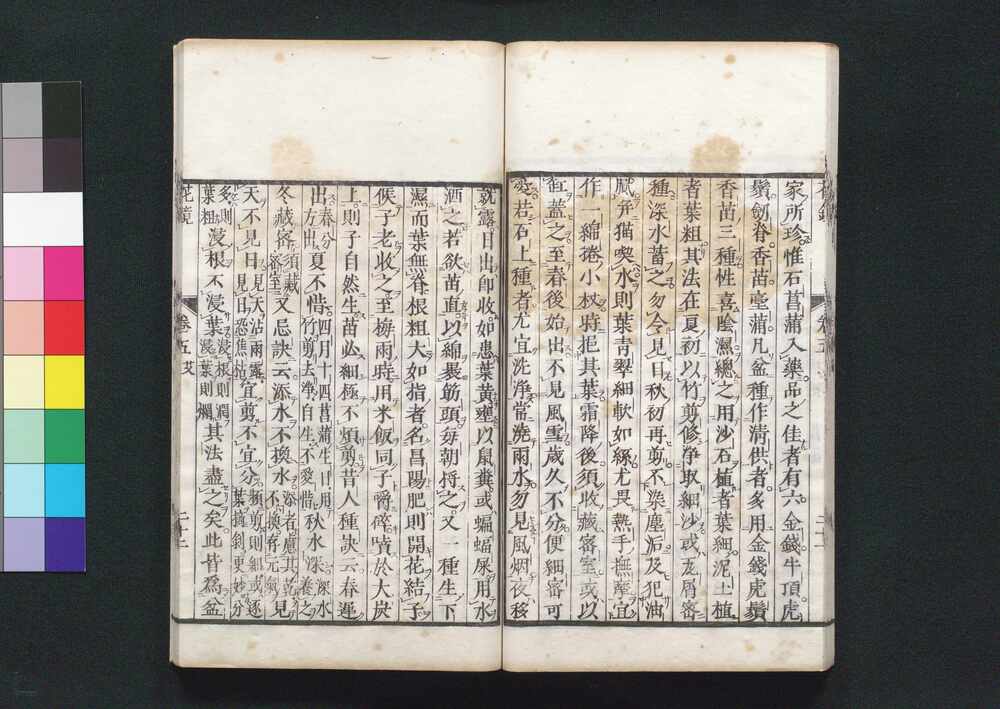 家所珍惟石菖蒲入藥品之佳者有六金錢牛頂虎
鬚劒脊香苗臺蒲凡盆種作清供者多用金錢虎鬚
香苗三種性喜陰濕總之用沙石植者葉細泥土植
者葉粗其法在夏初以竹剪修淨取細沙或瓦屑密
種深水蓄之勿令見日秋初再剪不染塵垢及犯油
膩并猫喫水則葉青翠細軟如絲尤畏熱手撫摩宜
作一綿捲小杖時挹其葉霜降後須收藏密室或以
缸蓋之至春後始出不見風雪歲久不分便細密可
愛若石上種者尤宜洗淨常澆雨水勿見風烟夜移
就露日出即收如患葉黃壅以鼠糞或蝙蝠屎用水
洒之若欲苗直以綿裹筯頭每朝捋之又一種生下
濕而葉無脊根粗大如指者名昌陽肥則開花結子
候子老收之至梅雨時用米飯同子嚼碎噴於大炭
上則子自然生苗必細極不煩剪昔人種訣云春遲
出春分出方夏不惜四月十四菖蒲生日用竹剪去淨自生不愛惜秋水深深水養之
冬藏密須藏密室又忌訣云添水不換水添者慮其乾不換存元氣見
天不見日見天沾雨露見日恐焦枯宜剪不宜分頻剪則細或逐葉摘剝更妙分
多則葉粗浸根不浸葉浸根則潤浸葉則爛其法盡之矣此皆為盆
花鏡
卷五艾
二十二